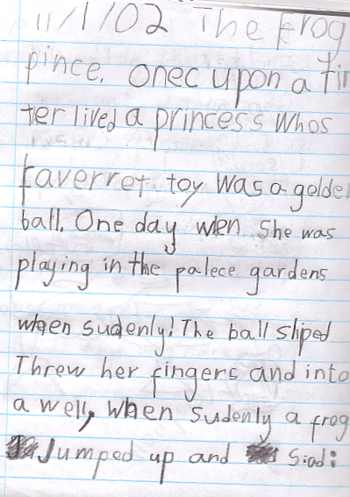 11/1/02 The frog
pince. Onec upon a tim
ter lived a princess whos
faverret toy was a golden
ball. One day when she was
playing in the palece gardens
when sudenly! The ball sliped
Threw her fingers and into
a well, when sudenly a frog
Jumped up and siad: